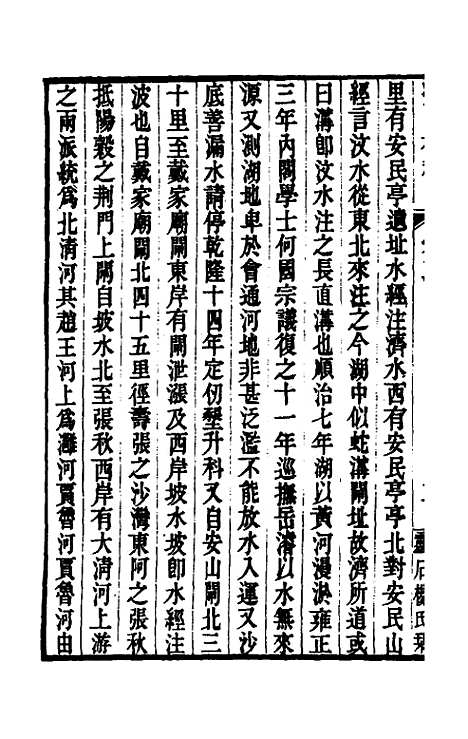 里有安民亭遺址水經注濟水西有安民亭亭北對安民山
經言汶水從東北來注之今湖中似虵溝閘址故濟所道或
曰溝卽汶水注之長直溝也順治七年湖以黃河漫淤雍正
三年內閣學士何國宗議復之十一年巡撫岳濬以水無來
源又測湖地卑於會通河地非甚泛濫不能放水入運又沙
底善漏水請停乾隆十四年定仞墾升科又自安山閘北三
十里至戴家廟閘東岸有閘泄漲及西岸坡水坡卽水經注
波也自戴家廟閘北四十五里徑壽張之沙灣東阿之張秋
抵陽穀之荆門上閘自坡水北至張秋西岸有大清河上游
之兩派統爲北清河其趙王河上爲灉河賈魯河賈魯河由